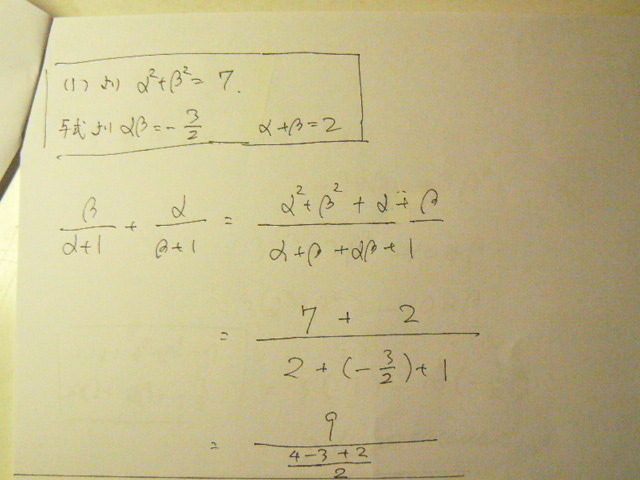 (1)より α²+β²= 7.
与式より αβ=-3/2 α+β=2
β/(α+1) + α/(β+1) = (α²+β²+α+β)/(α+β+αβ+1)
= (7+2)/(2+(-3/2)+1)
= 9/((4-3+2)/2)